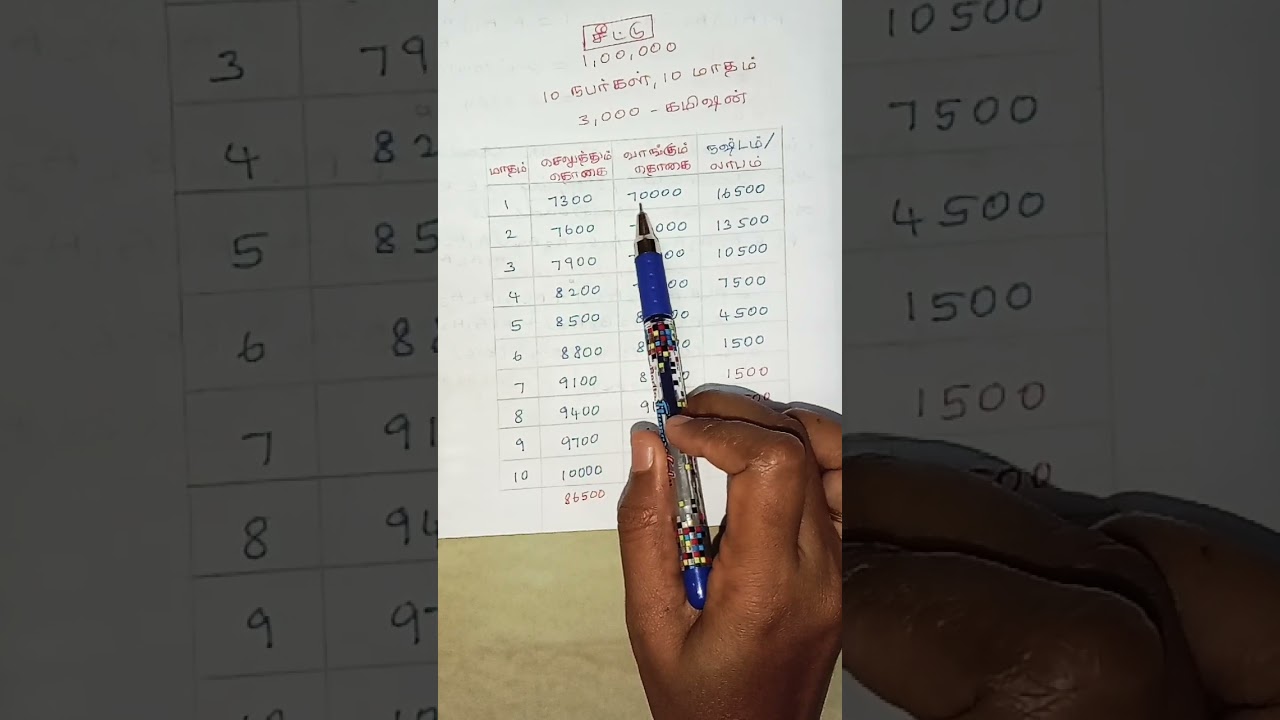 சீட்டு
1,00,000
10 நபர்கள், 10 மாதம்
3,000 - கமிஷன்
மாதம் செலுத்தும் தொகை வாங்கும் தொகை நஷ்டம்/ லாபம்
1 7300 70000 16500
2 7600 13500
3 7900 10500
4 8200 7500
5 8500 4500
6 8800 1500
7 9100 1500
8 9400
9 9700
10 10000
86500